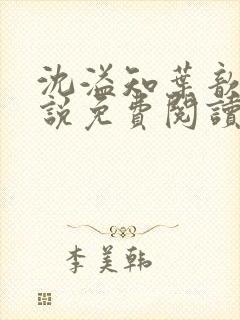 沈溢知葉歆
說免費閱讀
李美韩